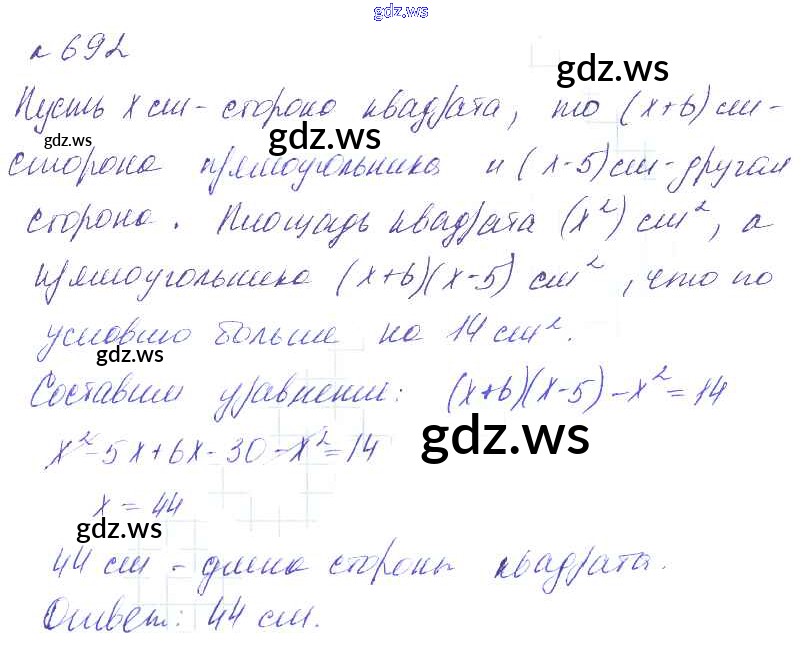 gdz.ws
№ 692
gdz.ws
Пусть x см - сторона квадрата, то (x+6) см -
gdz.ws
gdz.ws
сторона прямоугольника и (x-5) см - другая
сторона. Площадь квадрата (x²) см², а
прямоугольника (x+6)(x-5) см², что по
условию больше на 14 см².
gdz.ws
Составим уравнение: (x+6)(x-5)-x²=14
gdz.ws
x²-5x+6x-30-x²=14
x = 44
gdz.ws
44 см - длина стороны квадрата.
Ответ: 44 см.